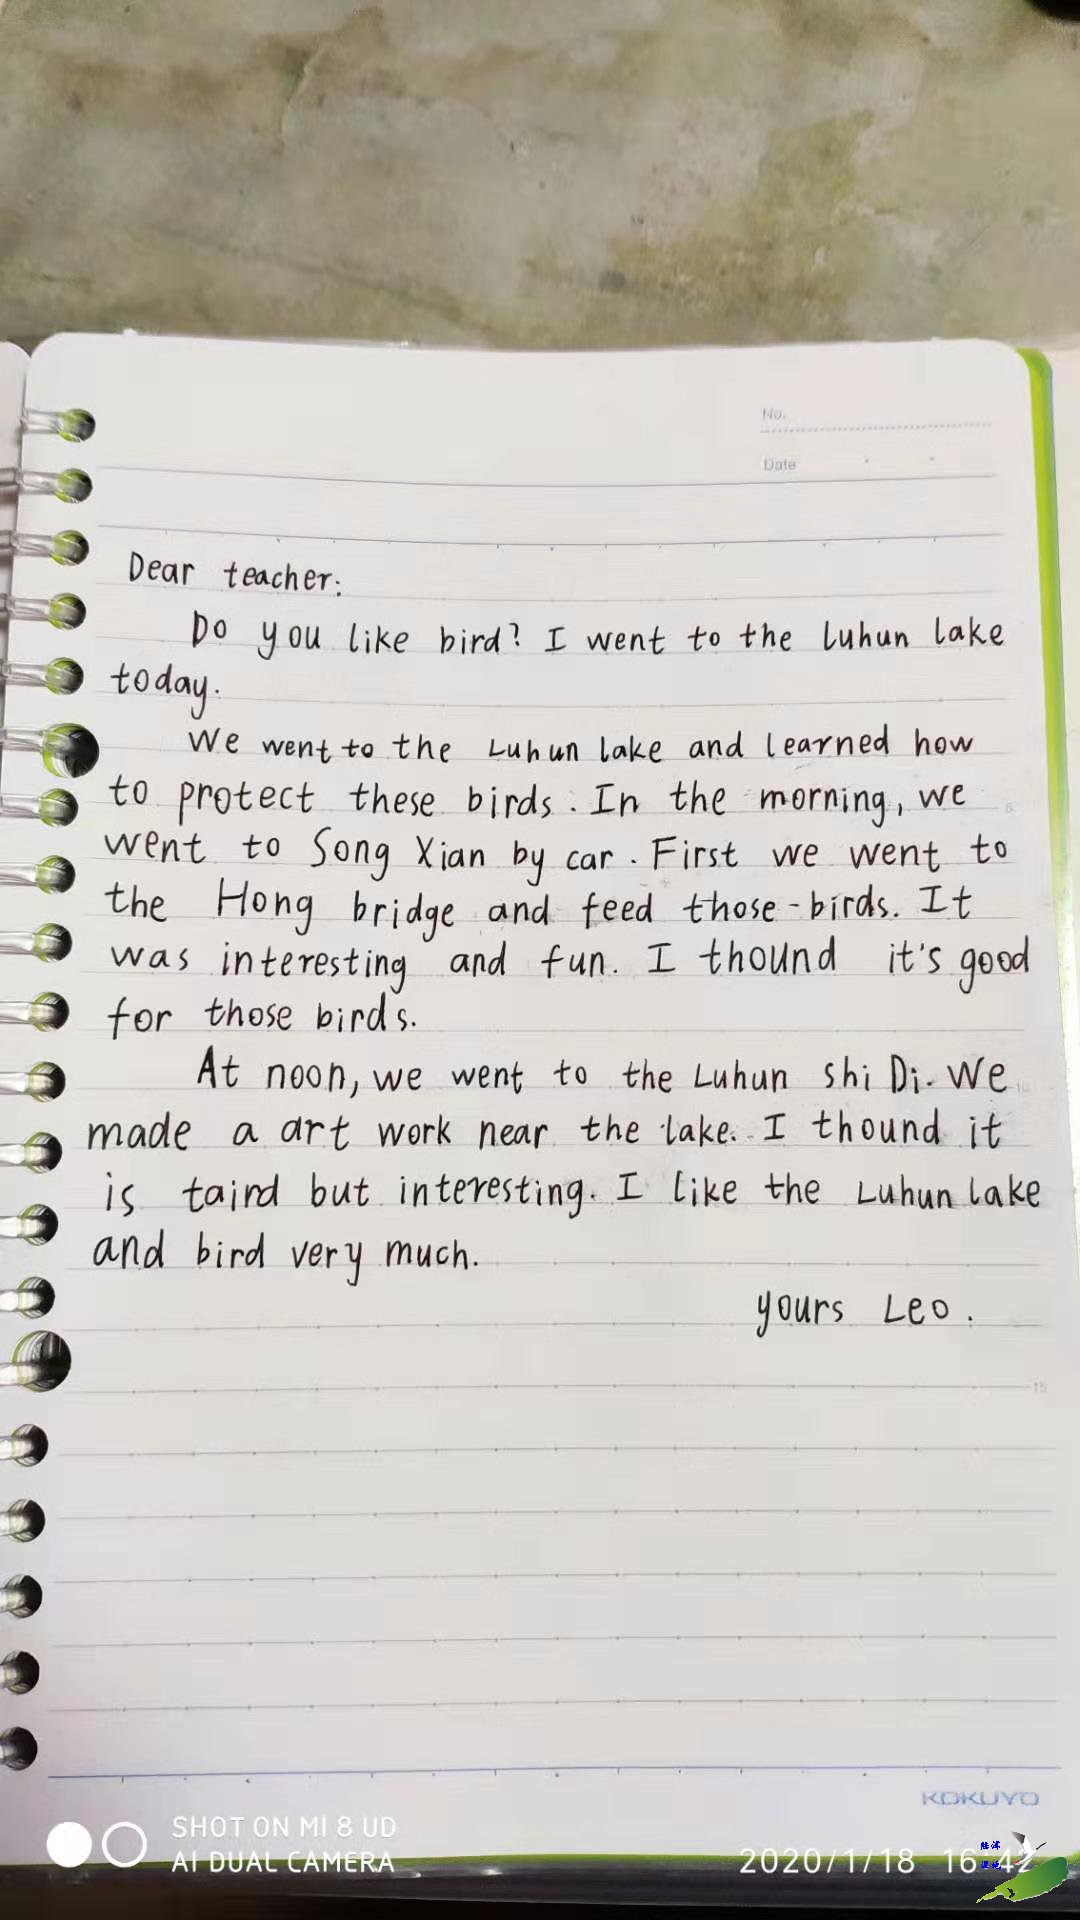 No.
Date
Dear teacher:
Do you like bird? I went to the luhun lake
today.
We went to the Luhun lake and learned how
to protect these birds. In the morning, we
went to Song Xian by car. First we went to
the Hong bridge and feed those-birds. It
was interesting and fun. I thound it's good
for those birds.
At noon, we went to the Luhun shi Di. We
made a art work near the lake. I thound it
is taird but interesting. I like the Luhun lake
and bird very much.
yours Leo.
15
KOKUYO
SHOT ON MI 8 UD
AI DUAL CAMERA
2020/1/18 16:42